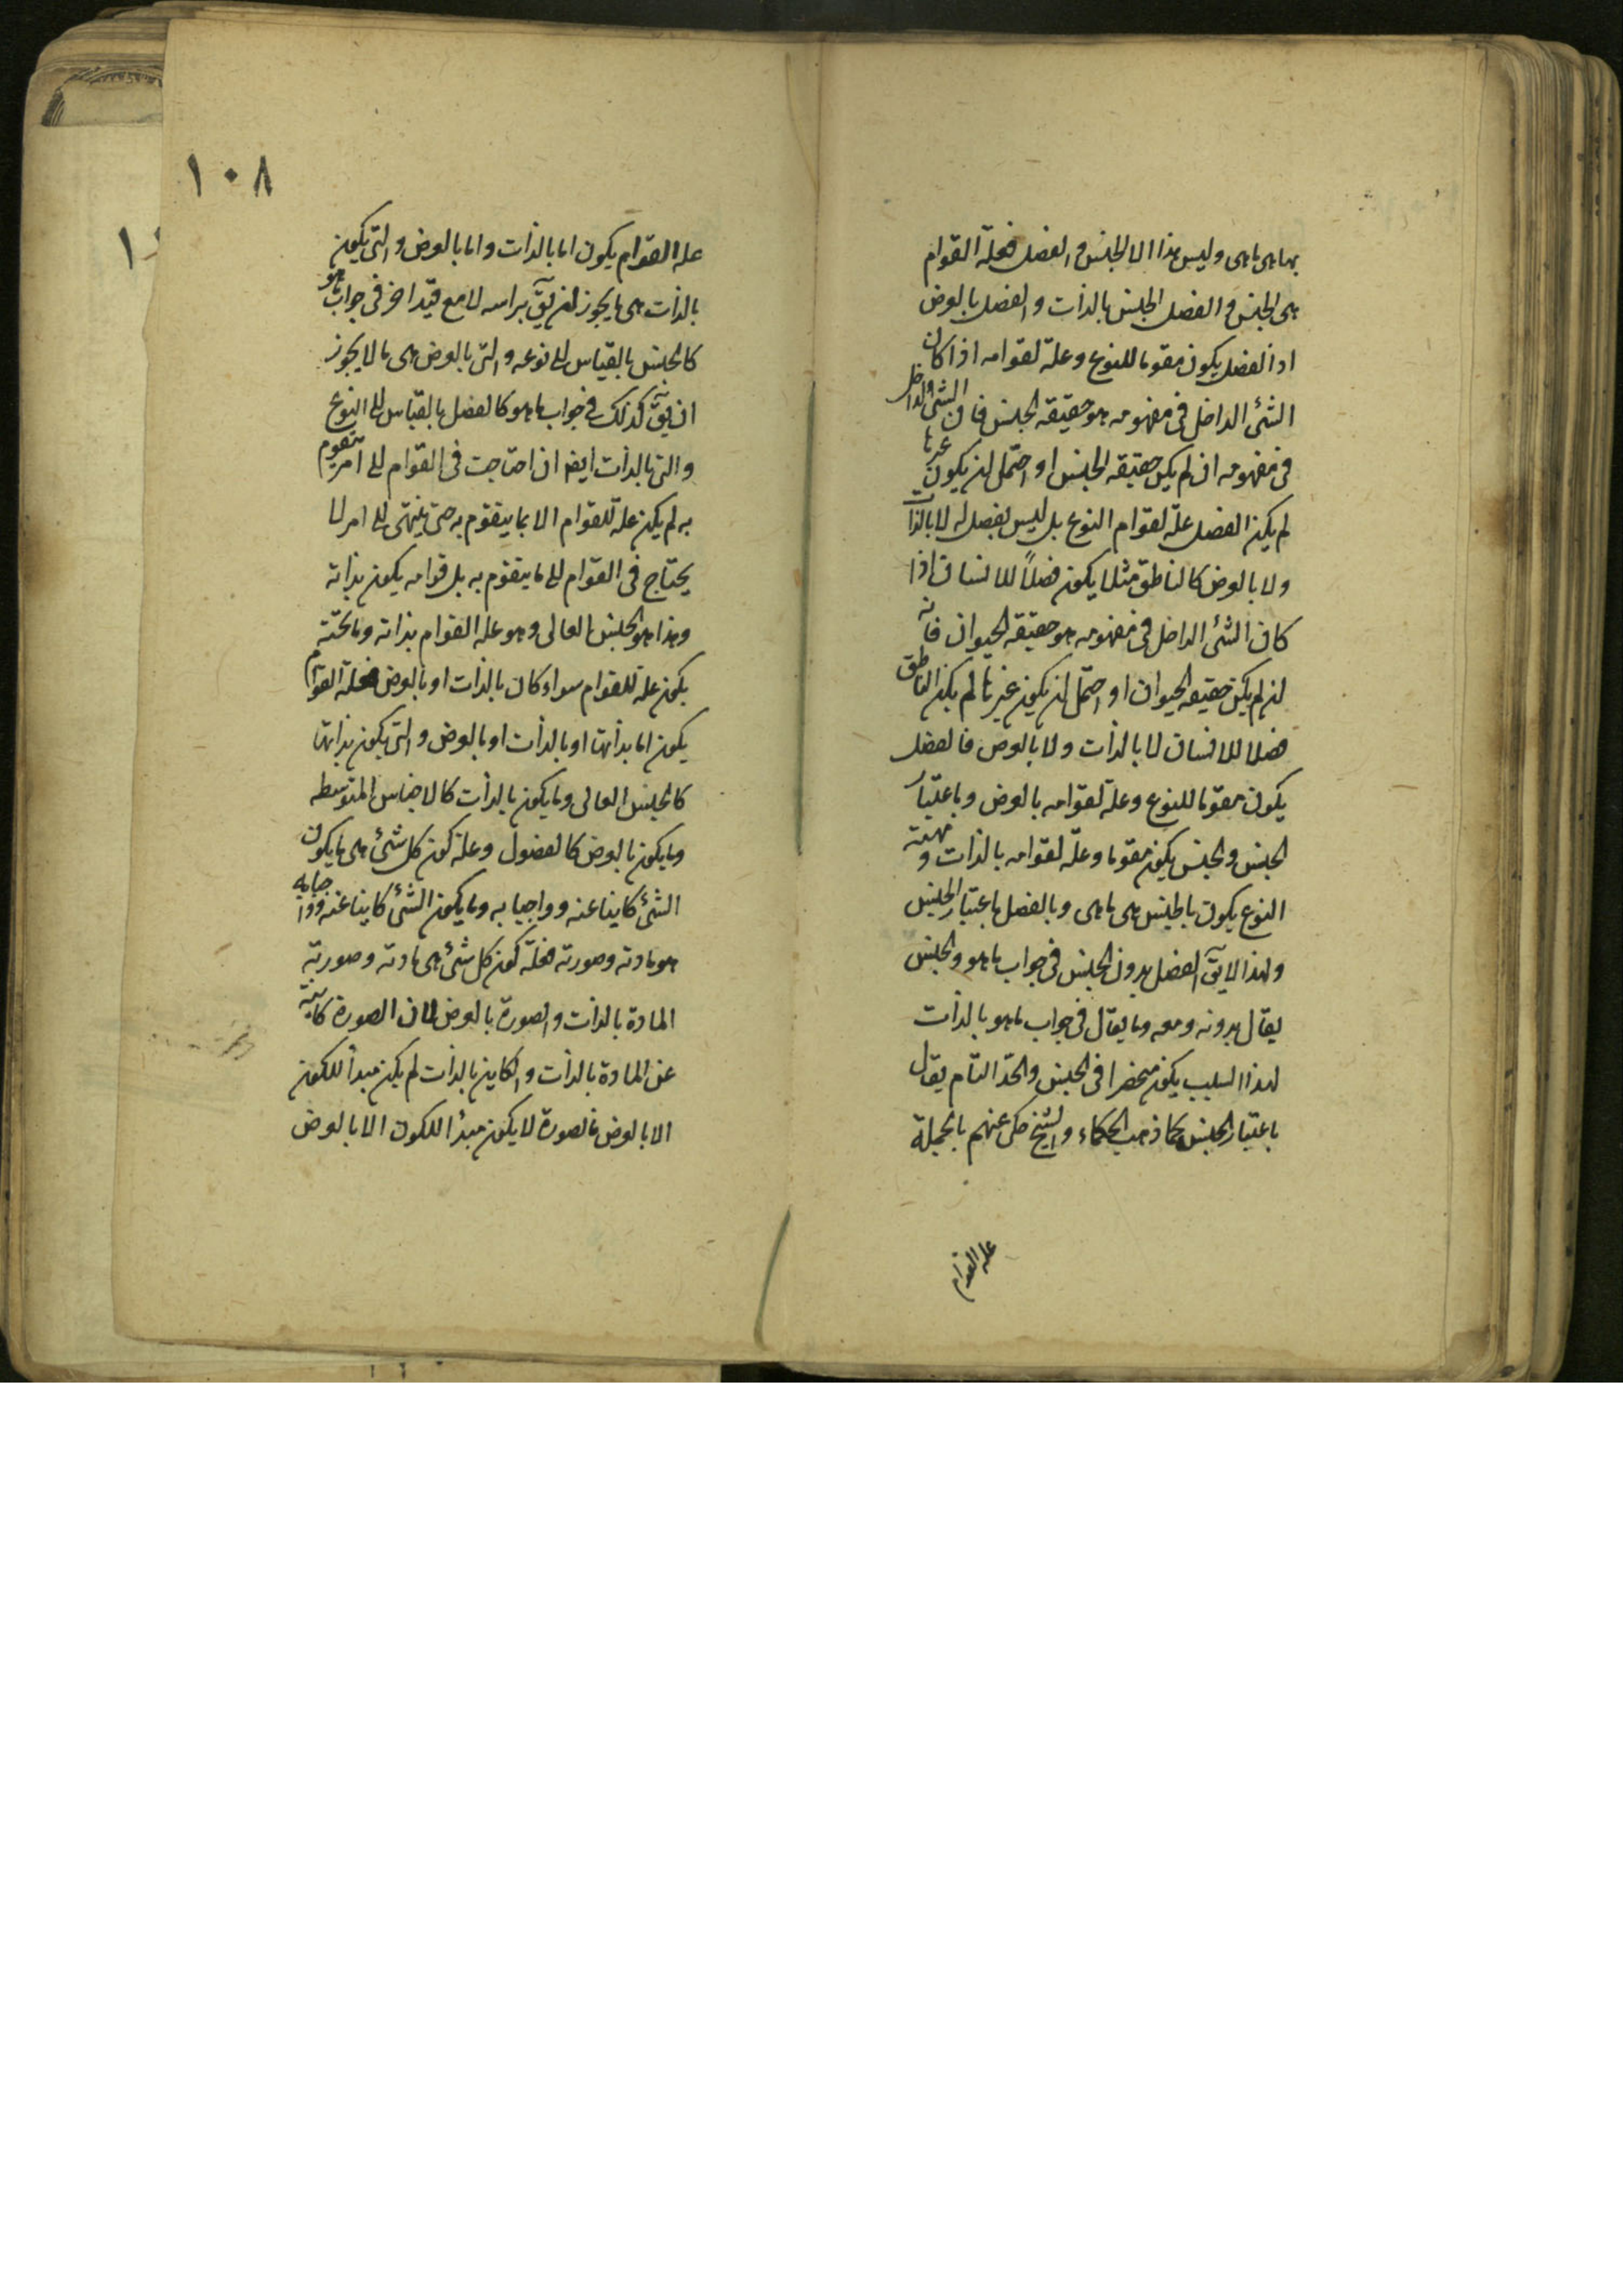 بها هى ما هى وليس هذا الا الجنس والفصل فعلة القوام
هى الجنس والفصل الجنس بالذات والفصل بالعرض
اذ الفصل يكون مقوما للنوع وعلة لقوامه اذا كان
الشئ الداخل فى مفهومه هو حقيقة الجنس فان الشئ الداخل
فى مفهومه ان لم يكن حقيقة الجنس او احتمل ان يكون غيرها
لم يكن الفصل علة لقوام النوع بل ليس بفصل له لا بالذات
ولا بالعرض كالناطق مثلا يكون فصلاً للانسان اذا
كان الشئ الداخل فى مفهومه هو حقيقة الحيوان فانه
ان لم يكن حقيقة الحيوان او احتمل ان يكون غيرها لم يكن الناطق
فصلا للانسان لا بالذات ولا بالعرض فالفصل
يكون مقوما للنوع وعلة لقوامه بالعرض وباعتبار
الجنس والجنس يكون مقوما وعلة لقوامه بالذات ومهية
النوع يكون بالجنس هى ما هى وبالفصل باعتبار الجنس
ولهذا لا يق الفصل بدون الجنس فى جواب ما هو والجنس
يقال بدونه ومعه وما يقال فى جواب ما هو بالذات
لهذا السبب يكون منحصرا فى الجنس والحد التام يقال
باعتبار الجنس كما ذهب الحكماء والشيخ حكى عنهم بالجملة
علة القوام
١٠٨
علة القوام يكون اما بالذات واما بالعرض والتى يكون
بالذات هى ما يجوز ان يق براسه لا مع قيد اخر فى جواب ما هو
كالجنس بالقياس الى نوعه والتى بالعرض هى ما لا يجوز
ان يق كذلك فى جواب ما هو كالفصل بالقياس الى النوع
والتى بالذات ايضا ان احتاجت فى القوام الى امر يتقوم
به لم يكن علة للقوام الا بما يتقوم به حتى ينتهى الى امر لا
يحتاج فى القوام الى ما يتقوم به بل قوامه يكون بذاته
وهذا هو الجنس العالى وهو علة القوام بذاته وما تحته
يكون علة للقوام سواء كان بالذات او بالعرض فعلة القوام
يكون اما بذاتها او بالذات او بالعرض والتى يكون بذاتها
كالجنس العالى وما يكون بالذات كالاجناس المتوسطه
وما يكون بالعرض كالفصول وعلة كون كل شئ هى ما يكون
الشئ كاينا عنه وواجبا به وما يكون الشئ كاينا عنه وواجبا به
هو مادته وصورته فعلة كون كل شئ هى مادته وصورته
المادة بالذات والصورة بالعرض لان الصورة كاينة
عن المادة بالذات والكاين بالذات لم يكن مبدأ للكون
الا بالعرض فالصورة لا يكون مبدأ للكون الا بالعرض